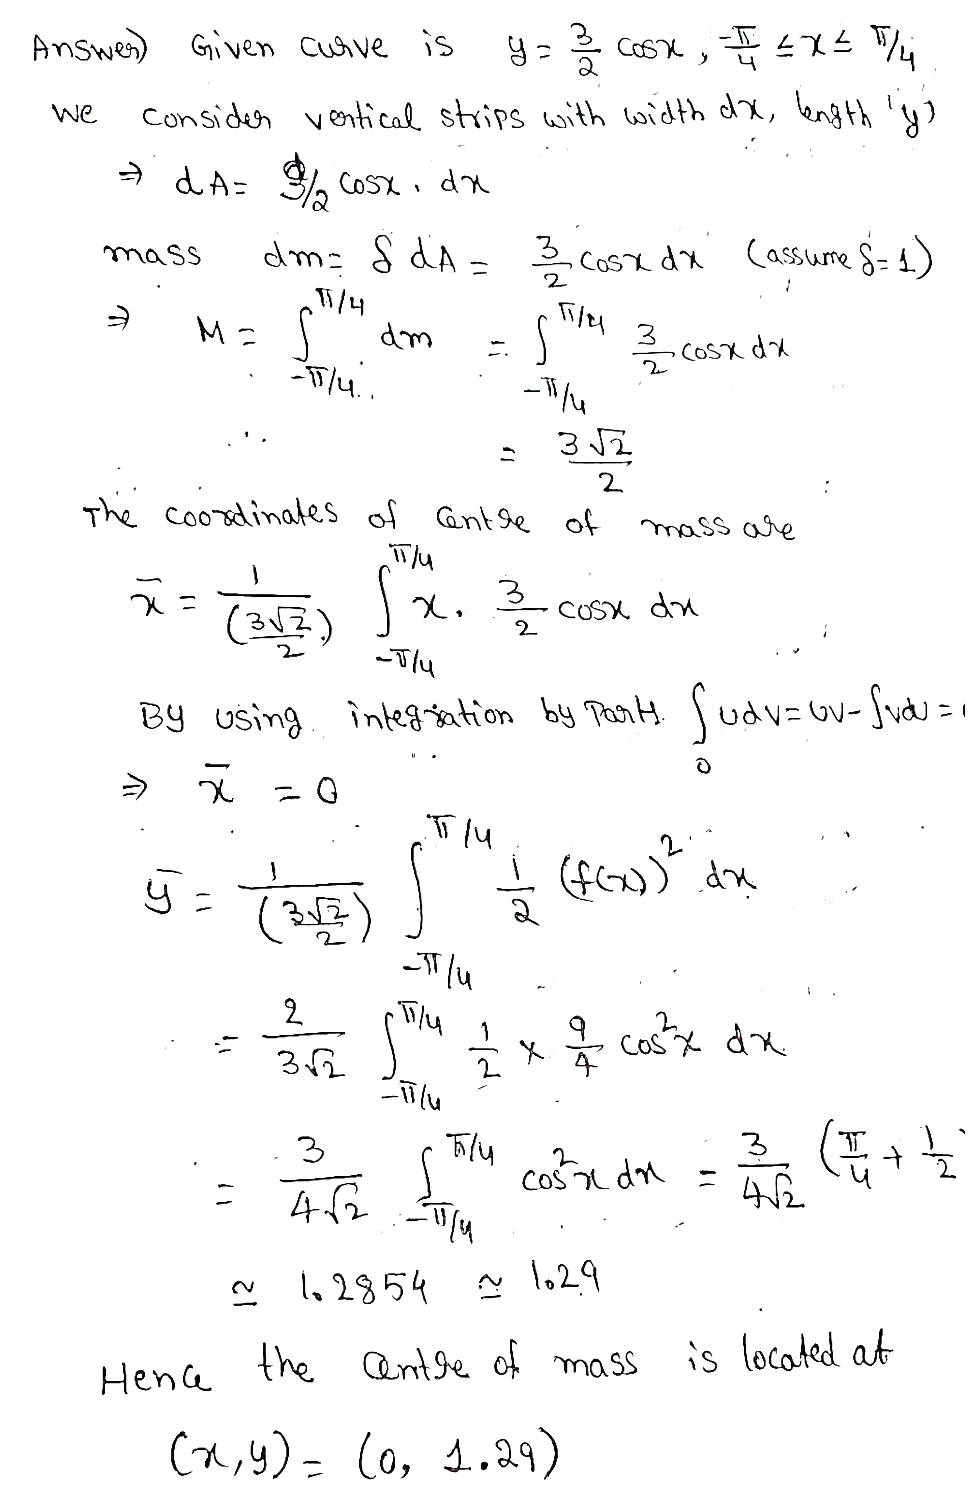 Answer) Given curve is y = 3/2 cosx, -π/4 ≤ x ≤ π/4
we consider vertical strips with width dx, length 'y'
⇒ dA = 3/2 cosx . dx
mass dm = δ dA = 3/2 cosx dx (assume δ = 1)
⇒ M = ∫_{-π/4}^{π/4} dm = ∫_{-π/4}^{π/4} 3/2 cosx dx
= 3√2/2
The coordinates of centre of mass are
x̄ = 1/(3√2/2) ∫_{-π/4}^{π/4} x. 3/2 cosx dx
By using integration by Parts. ∫udv = uv - ∫vdu =
0
⇒ x̄ = 0
ȳ = 1/(3√2/2) ∫_{-π/4}^{π/4} 1/2 (f(x))² dx
= 2/3√2 ∫_{-π/4}^{π/4} 1/2 × 9/4 cos²x dx
= 3/4√2 ∫_{-π/4}^{π/4} cos²x dx = 3/4√2 (π/4 + 1/2
≃ 1.2854 ≃ 1.29
Hence the centre of mass is located at
(x,y) = (0, 1.29)